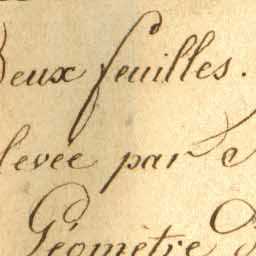 Deux feuilles.
levée par
Géomètre